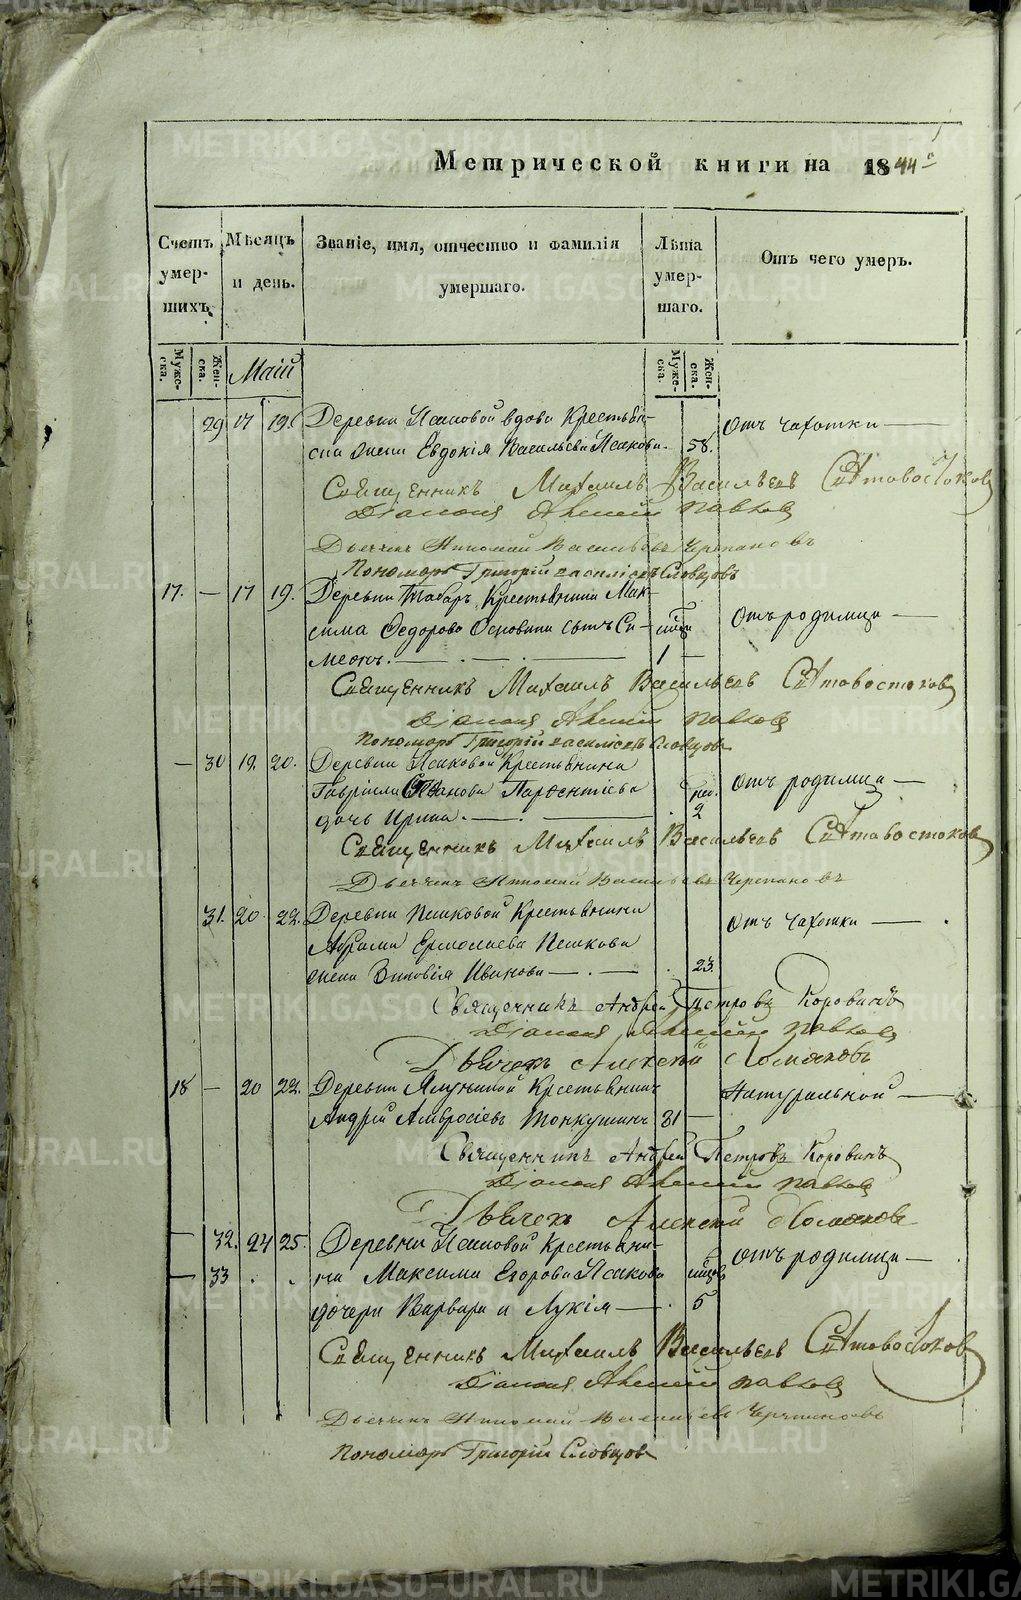 Метрической книги на 1844й
Счетъ умер- шихъ
Мѣсяцъ и день.
Званіе, имя, отчество и фамилія умершаго.
Лѣта умер- шаго.
Отъ чего умеръ.
Муже- ска.
Жен- ска.
Маій
Муже- ска.
Жен- ска.
29 17 19. Деревни Исаковой вдова Крестьян- отъ чахотки
ска жена Евдокія Васильева Исакова. 58.
Священникъ Михаилъ Васильевъ Святовостоковъ
Діаконъ Павловъ
Дьячекъ Николай Васильевъ Черепановъ
Пономарь Григорій Василіевъ Словцовъ
17. — 17 19. Деревни Табаръ Крестьянина Мак-
сима Федорова Основина сынъ Си- отъ родимца
меонъ. 1
Священникъ Михаилъ Васильевъ Святовостоковъ
Діаконъ Павловъ
Пономарь Григорій Василіевъ Словцовъ
— 30 19. 20. Деревни Исаковой Крестьянина
Гавріила Иванова Парфентіева нед. отъ родимца
дочь Ирина. 2
Священникъ Михаилъ Васильевъ Святовостоковъ
Дьячекъ Николай Васильевъ Черепановъ
31. 20. 22. Деревни Пешковой Крестьянина отъ чахотки
Абрама Ермолаева Пешкова
жена Зиновія Иванова 23.
Священникъ Андрей Петровъ Коровинъ
Діаконъ Павловъ
Дьячекъ Алексѣй Ломаковъ
18 — 20 22. Деревни Крестьянинъ Натуральной
Андрей Амвросіевъ Тонкушинъ 31
Священникъ Андрей Петровъ Коровинъ
Діаконъ Павловъ
Дьячекъ Алексѣй Ломаковъ
— 32. 24 25. Деревни Исаковой Крестьяни- отъ родимца
— 33 на Максима Егорова Исакова
дочери Варвара и Лукія 5
Священникъ Михаилъ Васильевъ Святовостоковъ
Діаконъ Павловъ
Дьячекъ Николай Васильевъ Черепановъ
Пономарь Григорій Словцовъ
METRIKI.GASO-URAL.RU